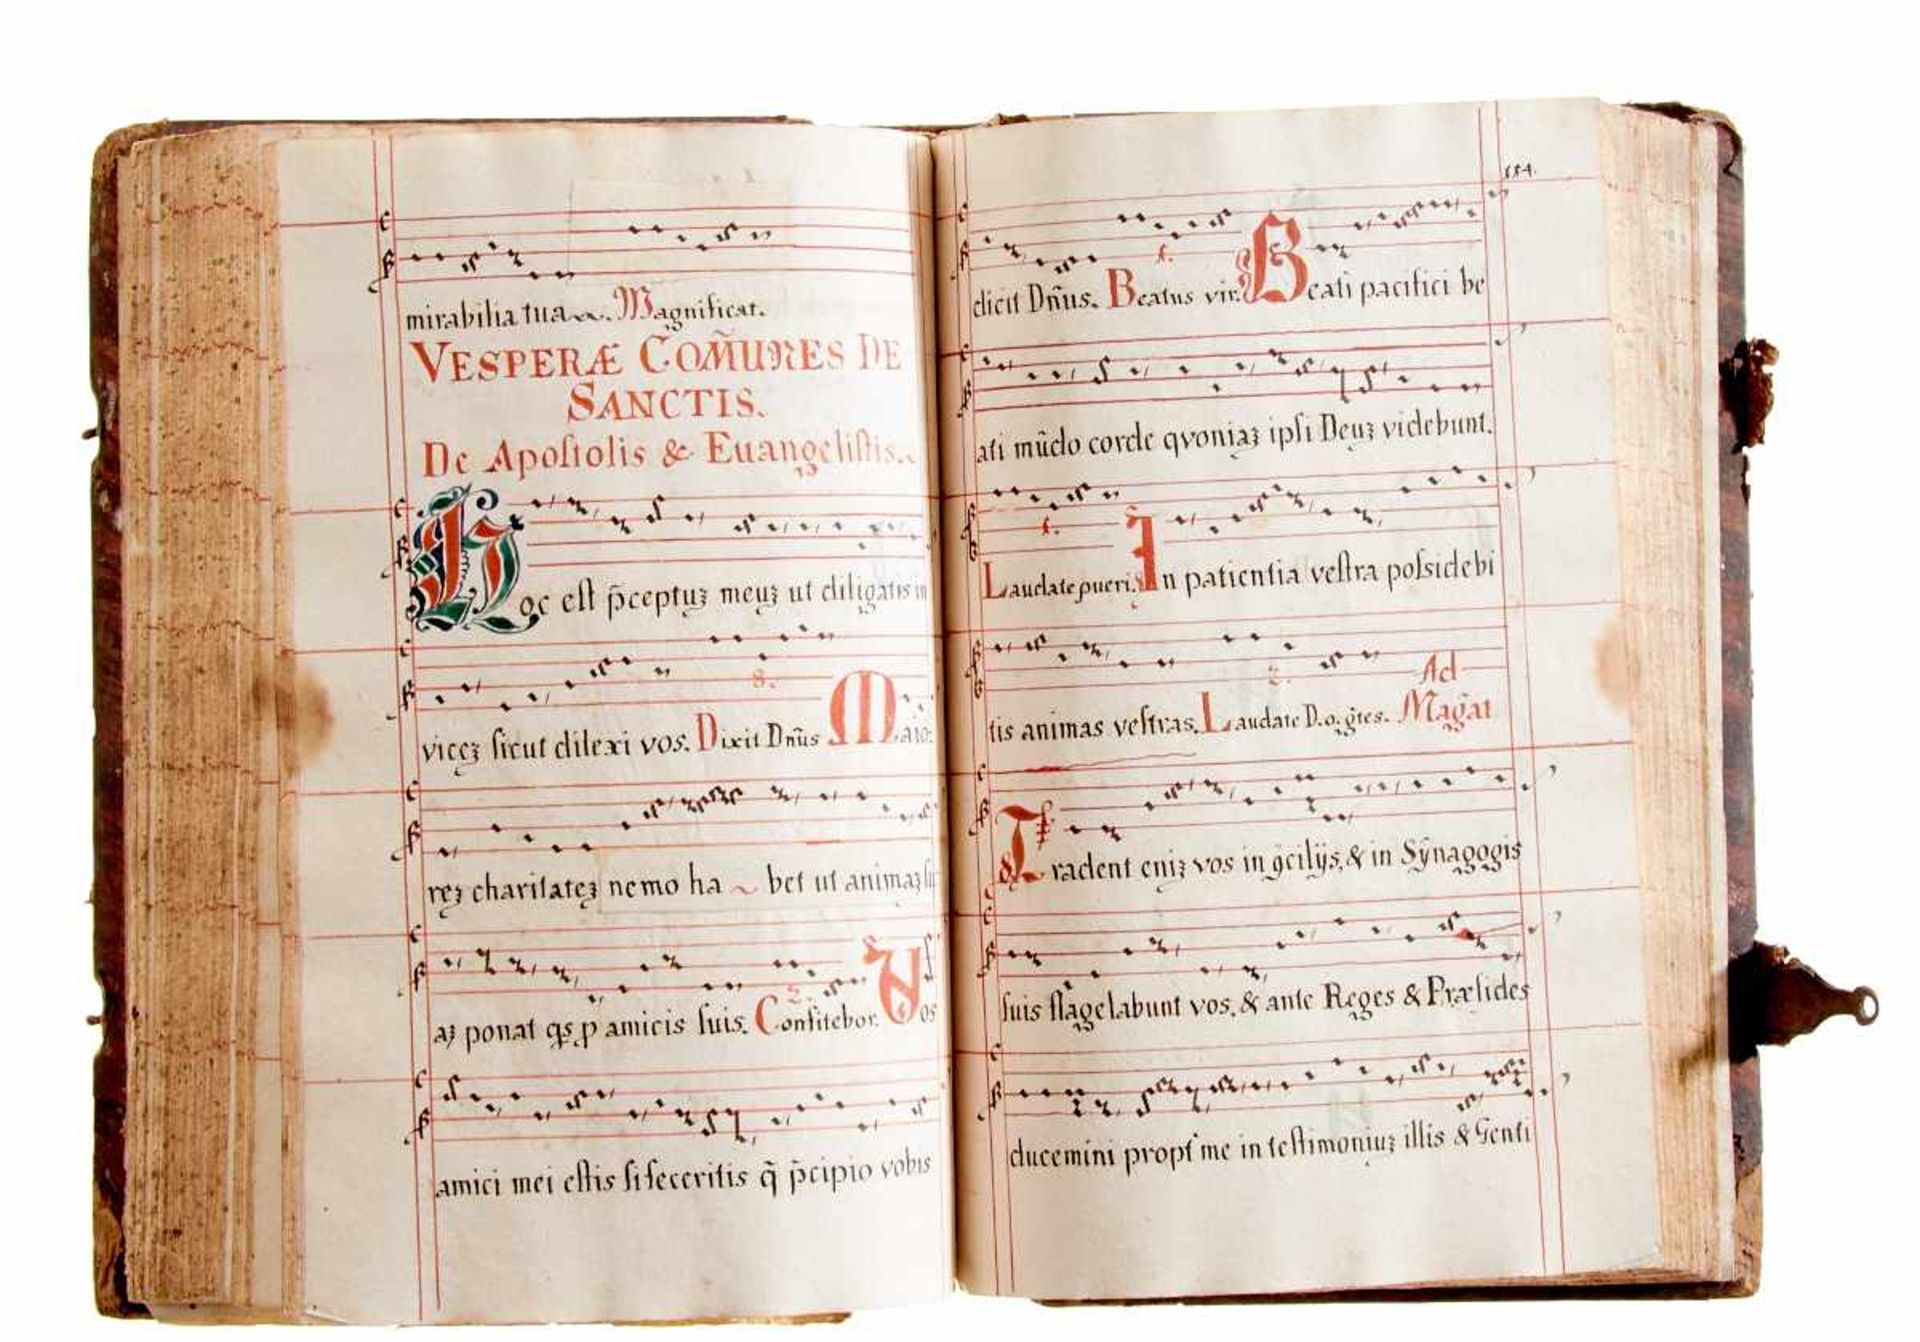 mirabilia tua. Magnificat.
VESPERÆ COM̃UNES DE
SANCTIS.
De Apoſtolis & Euangeliſtis.
8.
Hoc eſt p̃ceptuʒ meuʒ ut diligatis in
viceʒ ſicut dilexi vos. Dixit Dñus Maio:
reʒ charitateʒ nemo ha ~ bet ut animaʒ ſu
2.
aʒ ponat qs p amicis ſuis. Confitebor. Vos
amici mei eſtis ſi feceritis q̃ p̃cipio vobis
154.
1.
dicit Dñus. Beatus vir. Beati pacifici be
ati mũdo corde qvoniaʒ ipſi Deuʒ videbunt.
1.
Laudate pueri. In patientia veſtra poſsidebi
2.
Ad
tis animas veſtras. Laudate D.o.g̃tes. Mag̃at
Tradent eniʒ vos in g̃cilijs, & in Sÿnagogis
ſuis flagelabunt vos, & ante Reges & Præſides
ducemini propt me in teſtimoniuʒ illis & Genti